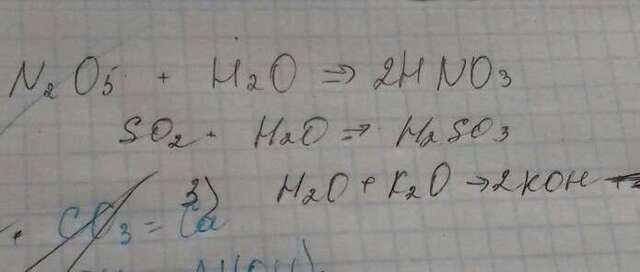 N₂O₅ + H₂O ⇒ 2HNO₃
SO₂ + H₂O ⇒ H₂SO₃
3) H₂O + K₂O → 2KOH